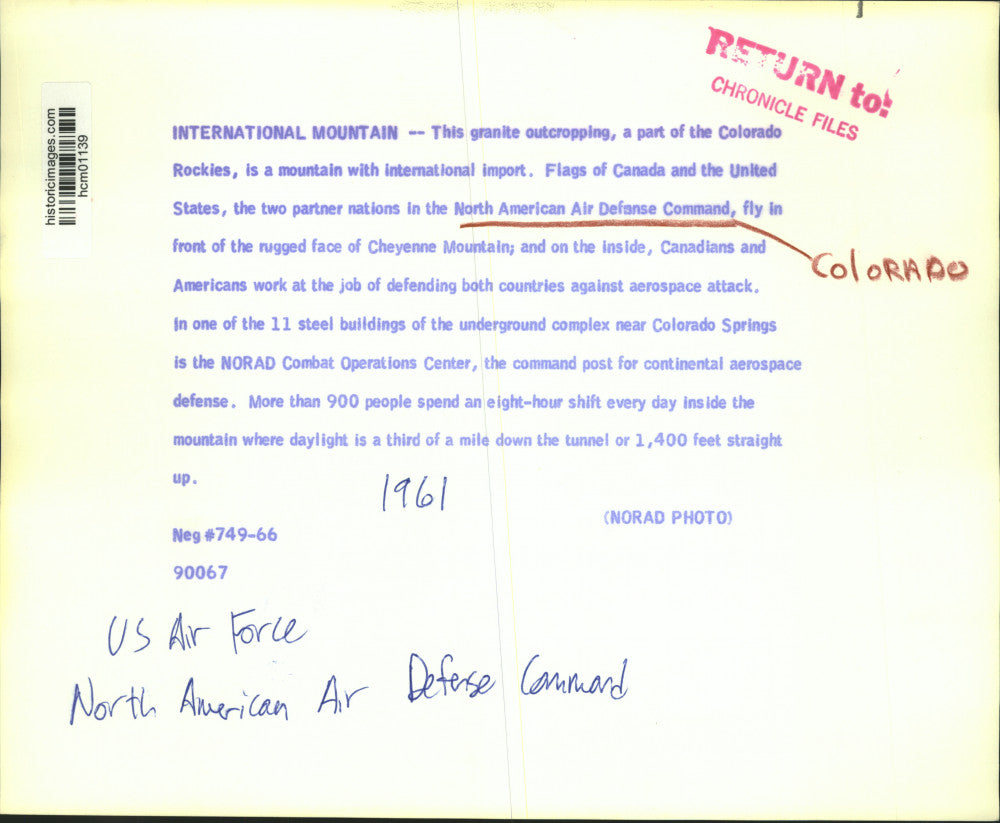 RETURN to:
CHRONICLE FILES
historicimages.com
hcm01139
INTERNATIONAL MOUNTAIN -- This granite outcropping, a part of the Colorado
Rockies, is a mountain with international import. Flags of Canada and the United
States, the two partner nations in the North American Air Defense Command, fly in
front of the rugged face of Cheyenne Mountain; and on the inside, Canadians and
COLORADO
Americans work at the job of defending both countries against aerospace attack.
In one of the 11 steel buildings of the underground complex near Colorado Springs
is the NORAD Combat Operations Center, the command post for continental aerospace
defense. More than 900 people spend an eight-hour shift every day inside the
mountain where daylight is a third of a mile down the tunnel or 1,400 feet straight
up.
1961
(NORAD PHOTO)
Neg #749-66
90067
US Air Force
North American Air Defense Command